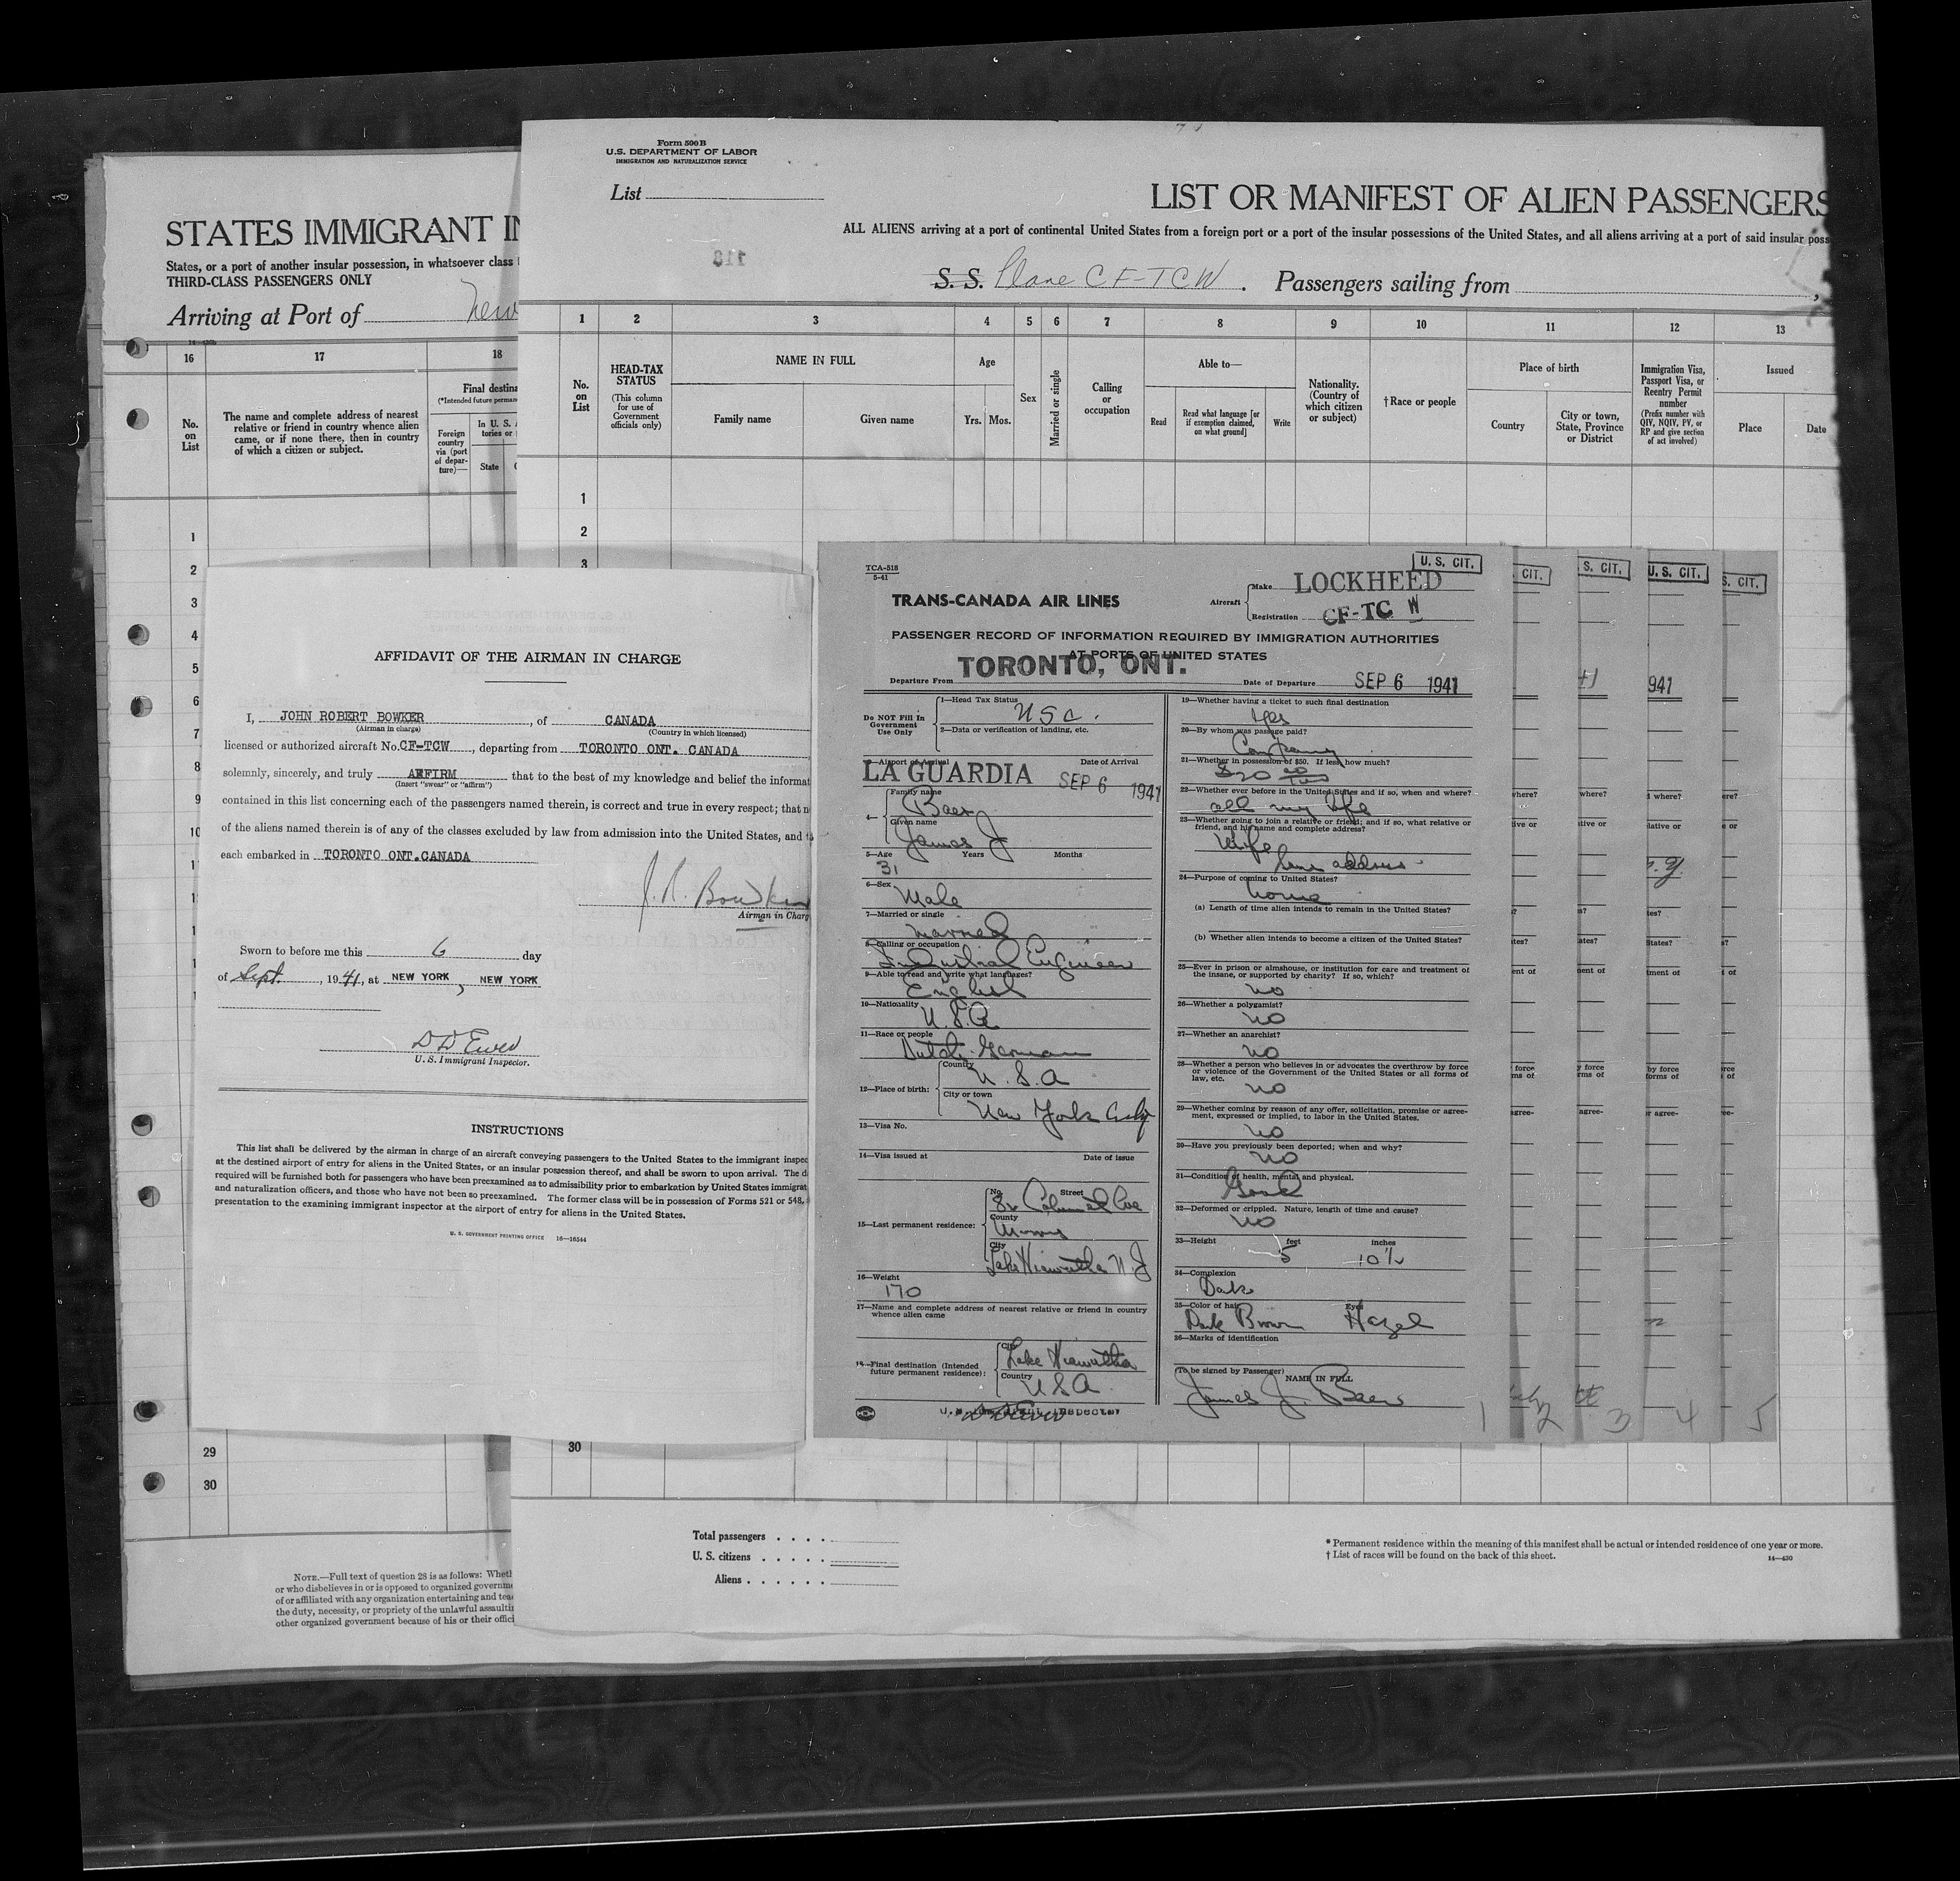 STATES IMMIGRANT IN
States, or a port of another insular possession, in whatsoever class
THIRD-CLASS PASSENGERS ONLY
Arriving at Port of New
16 17 18
No. on List
The name and complete address of nearest
relative or friend in country whence alien
came, or if none there, then in country
of which a citizen or subject.
Final destina
(*Intended future perman
Foreign
country
via (port
of depar-
ture)—
In U. S.
tories or
State
1
2
3
4
5
6
7
8
9
10
29
30
NOTE.—Full text of question 28 is as follows: Wheth
or who disbelieves in or is opposed to organized governme
of or affiliated with any organization entertaining and tea
the duty, necessity, or propriety of the unlawful assaulti
other organized government because of his or their offici
Form 500B
U.S. DEPARTMENT OF LABOR
IMMIGRATION AND NATURALIZATION SERVICE
List
118
LIST OR MANIFEST OF ALIEN PASSENGERS
ALL ALIENS arriving at a port of continental United States from a foreign port or a port of the insular possessions of the United States, and all aliens arriving at a port of said insular poss
S. S. Plane CF-TCW. Passengers sailing from
1 2 3 4 5 6 7 8 9 10 11 12 13
No.
on
List
HEAD-TAX
STATUS
(This column
for use of
Government
officials only)
NAME IN FULL
Family name Given name
Age
Yrs. Mos.
Sex
Married or single
Calling
or
occupation
Able to—
Read
Read what language [or
if exemption claimed,
on what ground]
Write
Nationality.
(Country of
which citizen
or subject)
†Race or people
Place of birth
Country
City or town,
State, Province
or District
Immigration Visa,
Passport Visa, or
Reentry Permit
number
(Prefix number with
QIV, NQIV, PV, or
RP and give section
of act involved)
Issued
Place Date
1
2
3
30
Total passengers . . . .
U. S. citizens . . . . .
Aliens . . . . . .
* Permanent residence within the meaning of this manifest shall be actual or intended residence of one year or more.
† List of races will be found on the back of this sheet.
14—430
AFFIDAVIT OF THE AIRMAN IN CHARGE
I, JOHN ROBERT BOWKER, of CANADA
(Airman in charge) (Country in which licensed)
licensed or authorized aircraft No. CF-TCW, departing from TORONTO ONT. CANADA
solemnly, sincerely, and truly AFFIRM that to the best of my knowledge and belief the informat
(Insert "swear" or "affirm")
contained in this list concerning each of the passengers named therein, is correct and true in every respect; that n
of the aliens named therein is of any of the classes excluded by law from admission into the United States, and
each embarked in TORONTO ONT.CANADA
J. R. Bowker
Airman in Charg
Sworn to before me this 6 day
of Sept., 1941, at NEW YORK, NEW YORK
D D Ewer
U. S. Immigrant Inspector.
INSTRUCTIONS
This list shall be delivered by the airman in charge of an aircraft conveying passengers to the United States to the immigrant inspec
at the destined airport of entry for aliens in the United States, or an insular possession thereof, and shall be sworn to upon arrival. The d
required will be furnished both for passengers who have been preexamined as to admissibility prior to embarkation by United States immigrat
and naturalization officers, and those who have not been so preexamined. The former class will be in possession of Forms 521 or 548,
presentation to the examining immigrant inspector at the airport of entry for aliens in the United States.
U. S. GOVERNMENT PRINTING OFFICE 16—16544
TCA-518
5-41
U. S. CIT.
TRANS-CANADA AIR LINES
Aircraft
Make LOCKHEED
Registration CF-TC W
PASSENGER RECORD OF INFORMATION REQUIRED BY IMMIGRATION AUTHORITIES
AT PORTS OF UNITED STATES
Departure From TORONTO, ONT. Date of Departure SEP 6 1941
Do NOT Fill In
Government
Use Only
1—Head Tax Status USC.
2—Data or verification of landing, etc.
3—Airport of Arrival Date of Arrival
LA GUARDIA SEP 6 1941
4— Family name Baer
Given name James J
5—Age Years Months
31
6—Sex Male
7—Married or single
Married
8—Calling or occupation
Industrial Engineer
9—Able to read and write what languages?
English
10—Nationality
U.S.A
11—Race or people
Dutch-German
12—Place of birth:
Country U.S.A
City or town New York City
13—Visa No.
14—Visa issued at Date of issue
15—Last permanent residence:
No. Street
County Morris
City Lake Hiawatha N.J
16—Weight
170
17—Name and complete address of nearest relative or friend in country
whence alien came
18—Final destination (Intended
future permanent residence):
City Lake Hiawatha
Country USA
U.S. Immigrant Inspector
D D Ewer
19—Whether having a ticket to such final destination
Yes
20—By whom was passage paid?
Company
21—Whether in possession of $50. If less, how much?
$20 00/100
22—Whether ever before in the United States and if so, when and where?
all my life
23—Whether going to join a relative or friend; and if so, what relative or
friend, and his name and complete address?
Wife
Same address
24—Purpose of coming to United States?
home
(a) Length of time alien intends to remain in the United States?
(b) Whether alien intends to become a citizen of the United States?
25—Ever in prison or almshouse, or institution for care and treatment of
the insane, or supported by charity? If so, which?
no
26—Whether a polygamist?
no
27—Whether an anarchist?
no
28—Whether a person who believes in or advocates the overthrow by force
or violence of the Government of the United States or all forms of
law, etc.
no
29—Whether coming by reason of any offer, solicitation, promise or agree-
ment, expressed or implied, to labor in the United States.
no
30—Have you previously been deported; when and why?
no
31—Condition of health, mental and physical.
Good
32—Deformed or crippled. Nature, length of time and cause?
no
33—Height feet inches
5 10½
34—Complexion
Dark
35—Color of hair Eyes
Dark Brown Hazel
36—Marks of identification
(To be signed by Passenger) NAME IN FULL
James J. Baer
1 2 3 4 5
CIT.
S. CIT.
U. S. CIT.
S. CIT.
41
941